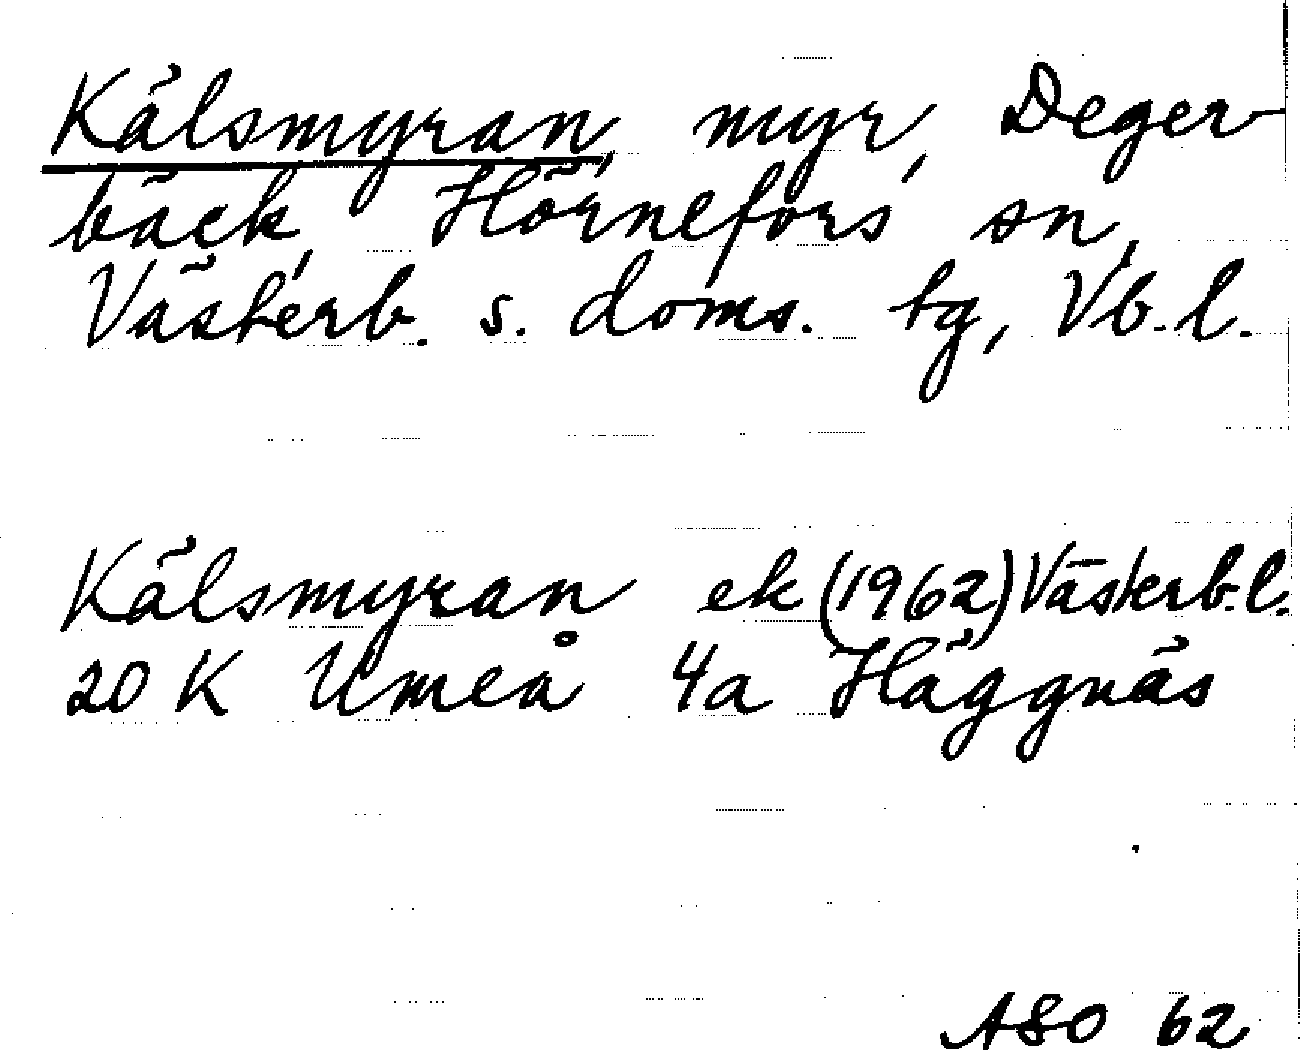 Kälsmyran, myr, Deger-
bäck, Hörnefors sn,
Västerb. s. doms. tg, Vb. l.
Kälsmyran ek (1962) Västerb. l.
20 K Umeå 4a Häggnäs
ASO 62